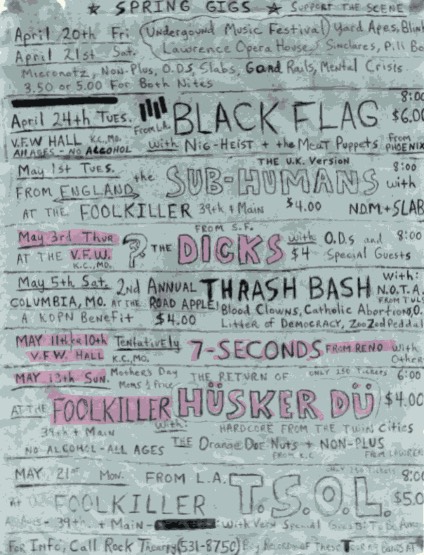 ★ SPRING GIGS ★ SUPPORT THE SCENE
April 20th Fri Underground Music Festival Yard Apes,
April 21st Sat. Lawrence Opera House Sinclares, Pill Bo
Micronotz, Non-Plus, O.D.S, Slabs, Gand Rails, Mental Crisis
3.50 or 5.00 For Both Nites
April 24th TUES. FROM L.A. BLACK FLAG 8:00 $6.00
V.F.W HALL K.C., MO. with NIG-HEIST + the MEAT PUPPETS From PHOENIX
All AGES - NO ALCOHOL
May 1st TUES. THE U.K. VERSION 8:00
FROM ENGLAND the SUB-HUMANS with
AT THE FOOLKILLER 39th + Main $4.00 N.O.M + SLAB
FROM S.F.
May 3rd Thur ? THE DICKS with O.D.s and 8:00
AT THE V.F.W. K.C., MO. $4 Special Guests
May 5th Sat. 2nd ANNUAL THRASH BASH With:
COLUMBIA, MO. AT THE ROAD APPLE! N.O.T.A. FROM TULS
A KOPN Benefit $4.00 Blood Clowns, Catholic Abortion, O.
Litter of DEMOCRACY, Zoo Zod Peddal
MAY 11th or 10th Tentatively 7-SECONDS FROM RENO With
V.F.W. HALL K.C., MO. Other
MAY 13th SUN. Mothers Day THE RETURN OF ONLY 250 TICKETS 6:00
Moms $ Free
AT THE FOOLKILLER HÜSKER DÜ $4.00
39th + Main With: HARDCORE FROM THE TWIN cities
NO ALCOHOL - ALL AGES THE Orange Doe Nuts + NON-PLUS
FROM K.C. FROM
MAY 21st Mon. FROM L.A. ONLY 250 TICKETS 8:00
At FOOLKILLER T.S.O.L. $5.0
39th + Main - With Very Special Guests
For Info, Call Rock Therapy (531-8750) Buy Records of These BANDS AT